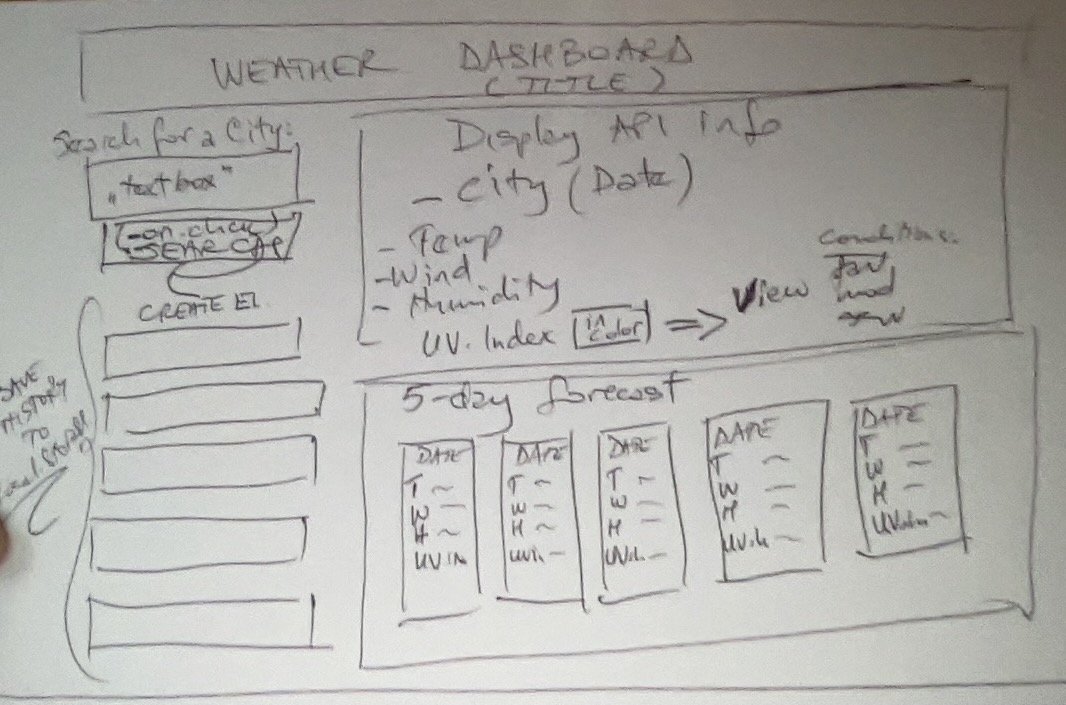 WEATHER DASHBOARD
(TITLE)
Search for a City:
„text box"
on.click
SEARCH
CREATE El.
SAVE
HISTORY
TO
local.Storage
Display API info
- City (Date)
- Temp
- Wind
- Humidity
UV. Index in color => View
Conditions:
fav
mod
5-day forecast
DATE
T
W
H
UV.IN
DATE
T
W
H
UV.
DATE
T
W
H
UV.
DATE
T
W
H
UV.
DATE
T
W
H
UV